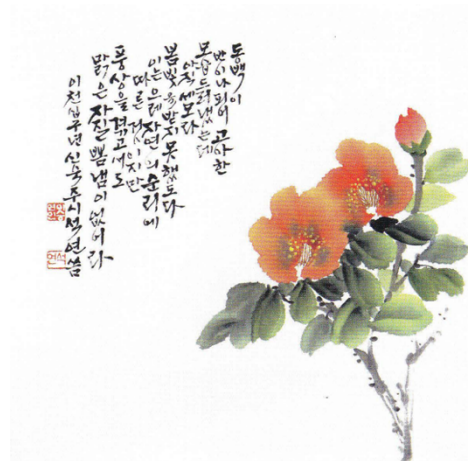 동백이
반이나 피어 고아한
모습 드러냈는데
아직 세모라
봄빛을 받지 못했도다
이는 으레 자연의 순리에
따른 것이지만
풍상을 겪고서도
맑은 자질 뽐냄이 없어라
이천십구년 신숙주 시 석연 씀